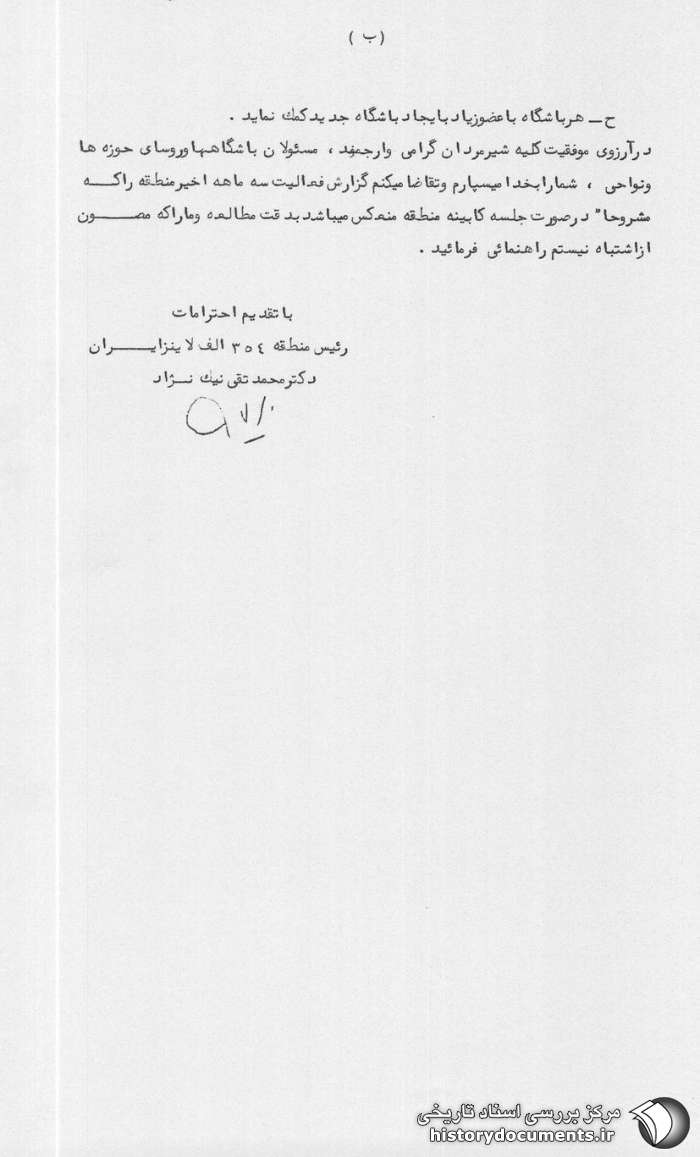 ( ب )
ح ـ هر باشگاه با عضو زیاد بایجاد باشگاه جدید کمک نماید .
در آرزوی موفقیت کلیه شیرمردان گرامی وارجمند ، مسئولان باشگاهها وروسای حوزه ها
ونواحی ، شما را بخدا میسپارم وتقاضا میکنم گزارش فعالیت سه ماهه اخیر منطقه راکـــه
مشروحا" در صورت جلسه کابینه منطقه منعکس میباشد بدقت مطالعه ومارا که مصـــــون
از اشتباه نیستم راهنمائی فرمائید .
با تقدیم احترامات
رئیس منطقه ۳۵٤ الف لاینزایـــــران
دکتر محمد تقی نیک نـــژاد
مرکز بررسی اسناد تاریخی
historydocuments.ir